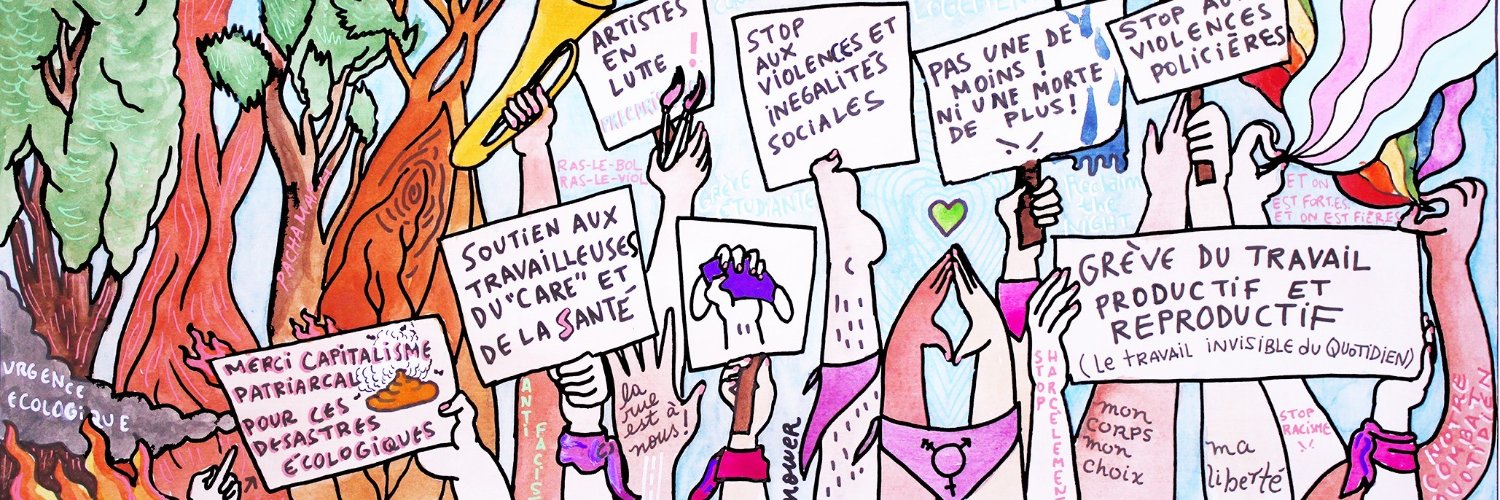 ARTISTES
EN
LUTTE !
STOP
AUX
VIOLENCES ET
INÉGALITÉS
SOCIALES
PAS UNE DE
MOINS !
NI UNE MORTE
DE PLUS !
STOP AUX
VIOLENCES
POLICIÈRES
RAS-LE-BOL
RAS-LE-VIOL
PACHAMAMA
SOUTIEN AUX
TRAVAILLEUSES
DU "CARE" ET
DE LA SANTÉ
Reclaim
the
NIGHT
ET ON
EST FORT.ES
ET ON EST FIÈRES
GRÈVE DU TRAVAIL
PRODUCTIF ET
REPRODUCTIF
(LE TRAVAIL INVISIBLE DU QUOTIDIEN)
MERCI CAPITALISME
PATRIARCAL
POUR CES
DESASTRES
ÉCOLOGIQUES
URGENCE
ECOLOGIQUE
ANTI
la
rue
est à
nous !
STOP
HARCELEMENT
mon
CORPS
mon
choix
ma
liberté
STOP
RACISME